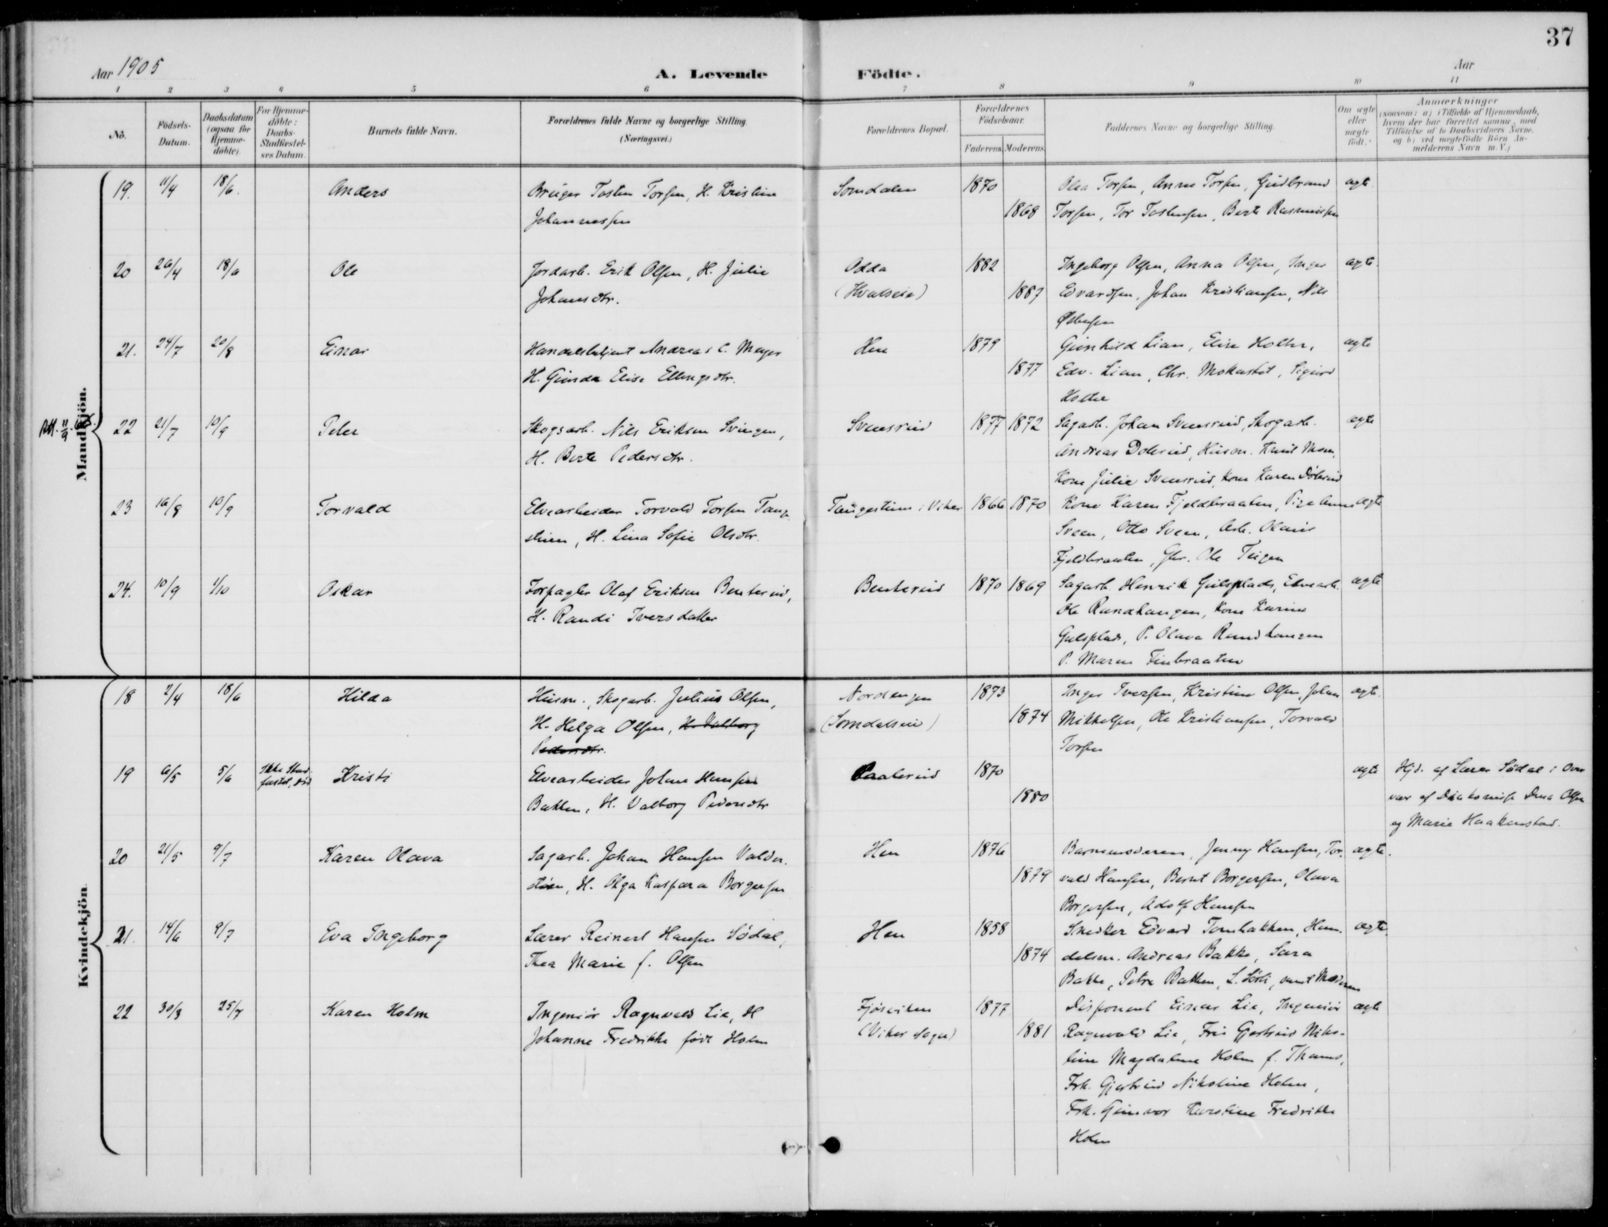 37
Aar 1905
A. Levende Födte.
Aar
1 2 3 4 5 6 7 8 9 10 11
No.
Födsels-
Datum.
Daabsdatum
(ogsaa for
Hjemme-
döbte).
For Hjemme-
döbte:
Daabs-
Stadfæstel-
ses Datum.
Barnets fulde Navn.
Forældrenes fulde Navne og borgerlige Stilling
(Næringsvei.)
Forældrenes Bopæl.
Forældrenes
Födselsaar.
Faderens. Moderens.
Faddernes Navne og borgerlige Stilling.
Om ægte
eller
uægte
födt.
Anmærkninger
(saasom: a) i Tilfælde af Hjemmedaab,
hvem der har forrettet samme, med
Tilföielse af to Daabsvidners Navne,
og b) ved uægtefödte Börn An-
melderens Navn m. V.)
Mandkjön.
19. 11/4 18/6. Anders
Torsen, H. Kristine
Johannessen
Somdalen
1870
1868
Olea Torsen, Anne Torsen, Gudbrand
Torsen, Tor Tostensen, Berte Rasmussen
ægte
20 26/4 18/6 Ole
Jordarb. Erik Olsen, H. Julie
Johansdtr.
Odda
(Hvalseie)
1882
1887
Ingeborg Olsen, Anna Olsen, Inger
Edvardsen, Johan Kristiansen, Nils
ægte.
21. 24/7 20/8 Einar
Handelsbetjent Andreas C. Meyer
H. Gunda Elise Ellingsdtr.
Hen
1879
1877
Gunhild Lian, Elise Holter,
Edv. Lian, Chr. Mokastet, Sigurd
Holter
ægte
22 21/7 10/9 Peter
Skogsarb. Nils Eriksen Svingen,
H. Berte Pedersdtr.
Svensrud
1877 1872
Sagarb. Johan Svensrud, Skogarb.
Andreas Dolerud, Husm. Knut Moen,
Kone Julie Svensrud, Kone Karen
ægte
23 16/8 10/9 Torvald
Elvearbeider Torvald Torsen Tang-
stuen, H. Lina Sofie Olsdtr.
Tangestuen i Viker
1866 1870
Kone Karen Fjeldbraaten, Pige Anne
Sveen, Otto Sveen, Arb. Olaus
Fjeldbraaten, Gbr. Ole Teigen
ægte
24. 10/9 1/10 Oskar
Forpagter Olaf Eriksen Benterud,
H. Randi Iversdatter
Benterud
1870 1869
Sagarb. Henrik Gulsplads, Elvearb.
Ole Randhaugen, Kone Karine
Gulsplads, P. Olava Randhaugen
P. Maren Finbraaten
ægte
Kvindekjön.
18 2/4 18/6 Hilda
Husm. Skogarb. Julius Olsen,
H. Helga Olsen, H. Valborg
Pedersdtr.
Nordengen
(Somdalseie)
1873
1874
Inger Iversen, Kristine Olsen, Johan
Mikkelsen, Ole Kristiansen, Torvald
Torsen
ægte
19 6/5 5/6 Ikke Stad-
fæstet, död Kristi
Elvearbeider Johan Hansen
Bakken, H. Valborg Pedersdtr
Paalerud
1870
1880
ægte
Hjd. af Lærer Södal i Over
vær af Diakonisse Dina Olsen
og Marie Haakenstad.
20 21/5 9/7 Karen Olava
Sagarb. Johan Hansen Valder-
stöen, H. Olga Kaspara Borgersen
Hen
1876
1879
Barnemoderen, Jenny Hansen, Tor-
vald Hansen, Bernt Borgersen, Olava
Borgersen, Adolf Hansen
ægte.
21. 14/6 9/7 Eva Ingeborg
Lærer Reinert Hansen Södal,
Thea Marie f. Olsen
Hen
1858
1874
Snedker Edvard Tombakken, Han-
delsm. Andreas Bakke, Sara
Bakke, Petra Bakken, samt Moderen
ægte.
22 30/3 25/7 Karen Holm
Ingeniör Ragnvald Lie, H
Johanne Fredrikke födt Holm
(Viker Sogn)
1877
1881
Disponent Einar Lie, Ingeniör
Ragnvald Lie, Fru Gjertrud Niko-
line Magdalene Holm f. Thams,
Frk. Gjertrud Nikoline Holm,
Frk. Gunvor Karoline Fredrikke
Holm
ægte